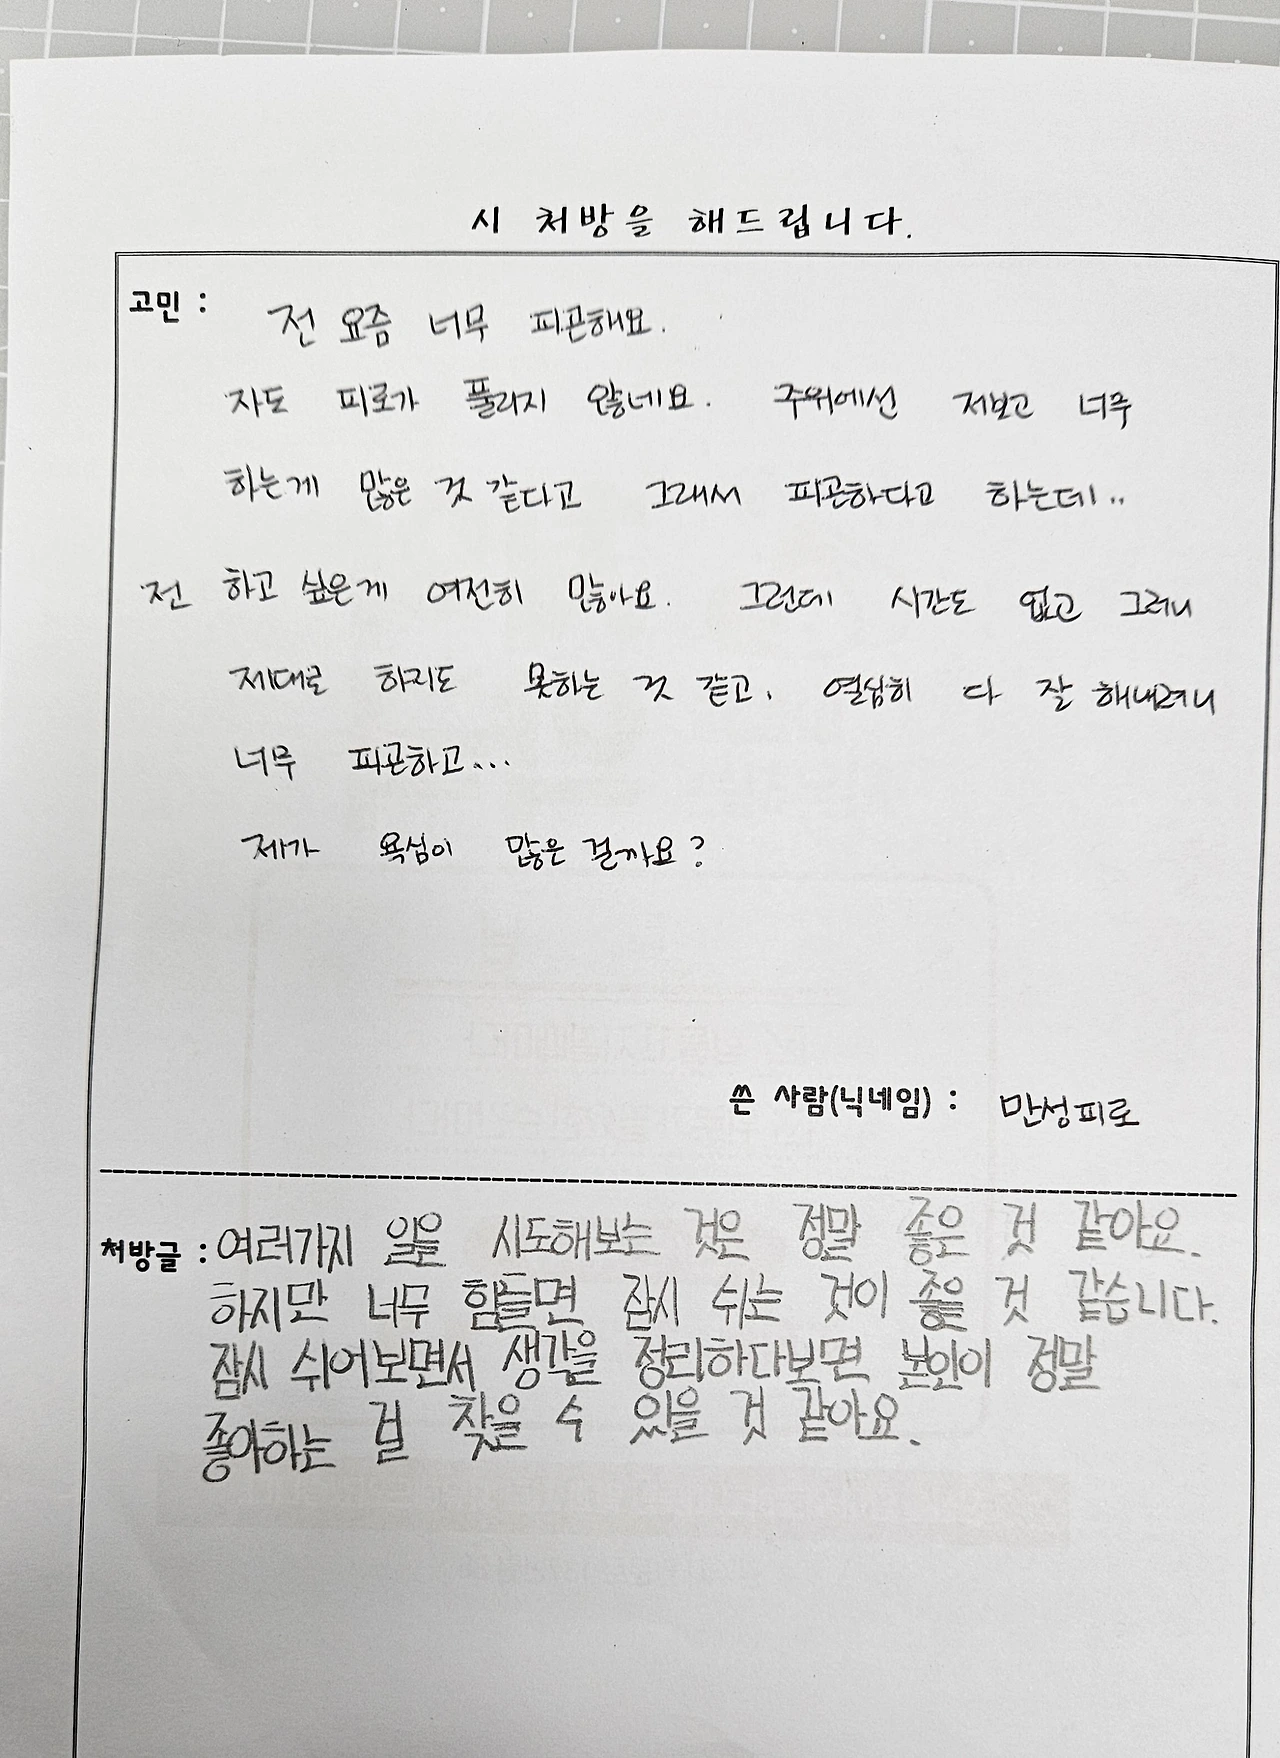 시 처방을 해드립니다.
고민 : 전 요즘 너무 피곤해요.
자도 피로가 풀리지 않네요. 주위에선 저보고 너무
하는게 많은 것 같다고 그래서 피곤하다고 하는데..
전 하고 싶은게 여전히 많아요. 그런데 시간도 없고 그러니
제대로 하지도 못하는 것 같고, 열심히 다 잘 해내려니
너무 피곤하고...
제가 욕심이 많은 걸까요?
쓴 사람(닉네임) : 만성피로
처방글 : 여러가지 일을 시도해보는 것은 정말 좋은 것 같아요.
하지만 너무 힘들면 잠시 쉬는 것이 좋을 것 같습니다.
잠시 쉬어보면서 생각을 정리하다보면 본인이 정말
좋아하는 걸 찾을 수 있을 것 같아요.